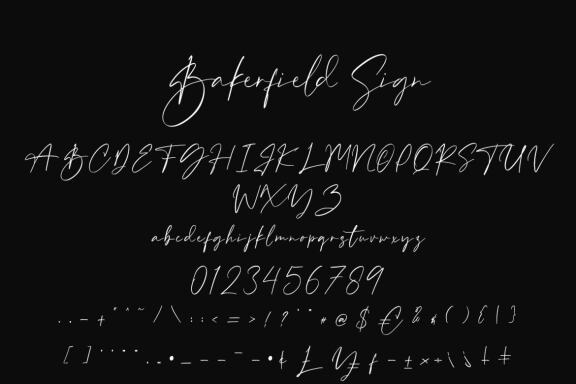 Bakerfield Sign
ABCDEFGHIJKLMNOPQRSTUV
WXYZ
abcdefghijklmnopqrstuvwxyz
0123456789
. . - + " ^ ~ / \ : ; < = > ! ? ¨ * @ $ € & ( ) { | }
[ ] • _ – — - • £ ¥ ƒ - ± × ÷ ‡